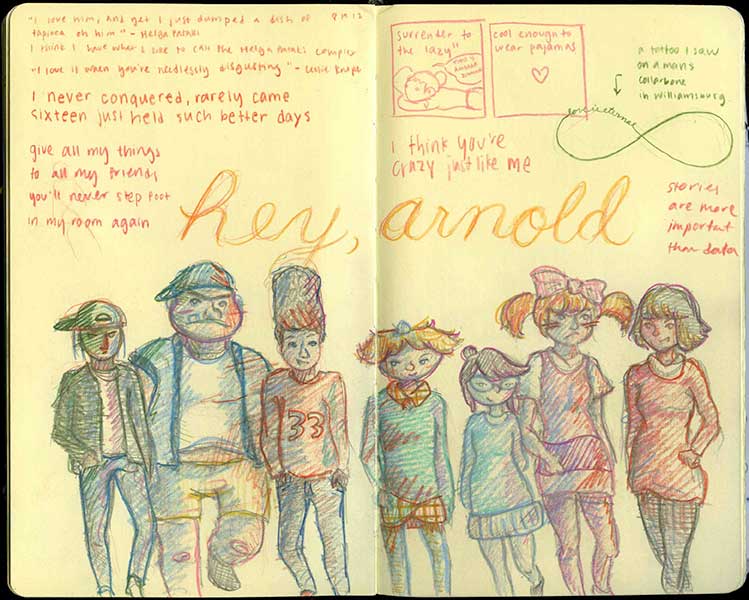 "I love him, and yet I just dumped a dish of
tapioca on him" - Helga Pataki
8 19 12
I think I have what I like to call the Helga Pataki Complex
"I love it when you're needlessly disgusting" - Leslie Knope
I never conquered, rarely came
sixteen just held such better days
give all my things
to all my friends
you'll never step foot
in my room again
surrender to
the lazy"
cool enough to
wear pajamas
a tattoo I saw
on a man's
collarbone
in Williamsburg
love is eternal
I think you're
crazy just like me
stories
are more
important
than data
hey, arnold
33